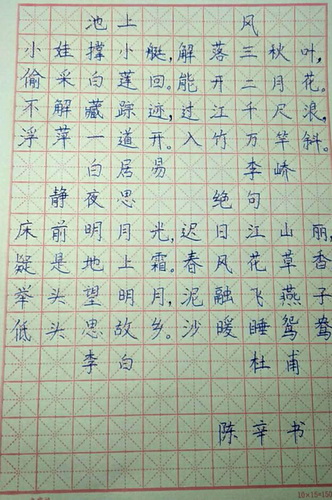 池上 风
小娃撑小艇,解落三秋叶,
偷采白莲回。能开二月花。
不解藏踪迹,过江千尺浪,
浮萍一道开。入竹万竿斜。
白居易 李峤
静夜思 绝句
床前明月光,迟日江山丽,
疑是地上霜。春风花草香
举头望明月,泥融飞燕子
低头思故乡。沙暖睡鸳鸯
李白 杜甫
陈辛书